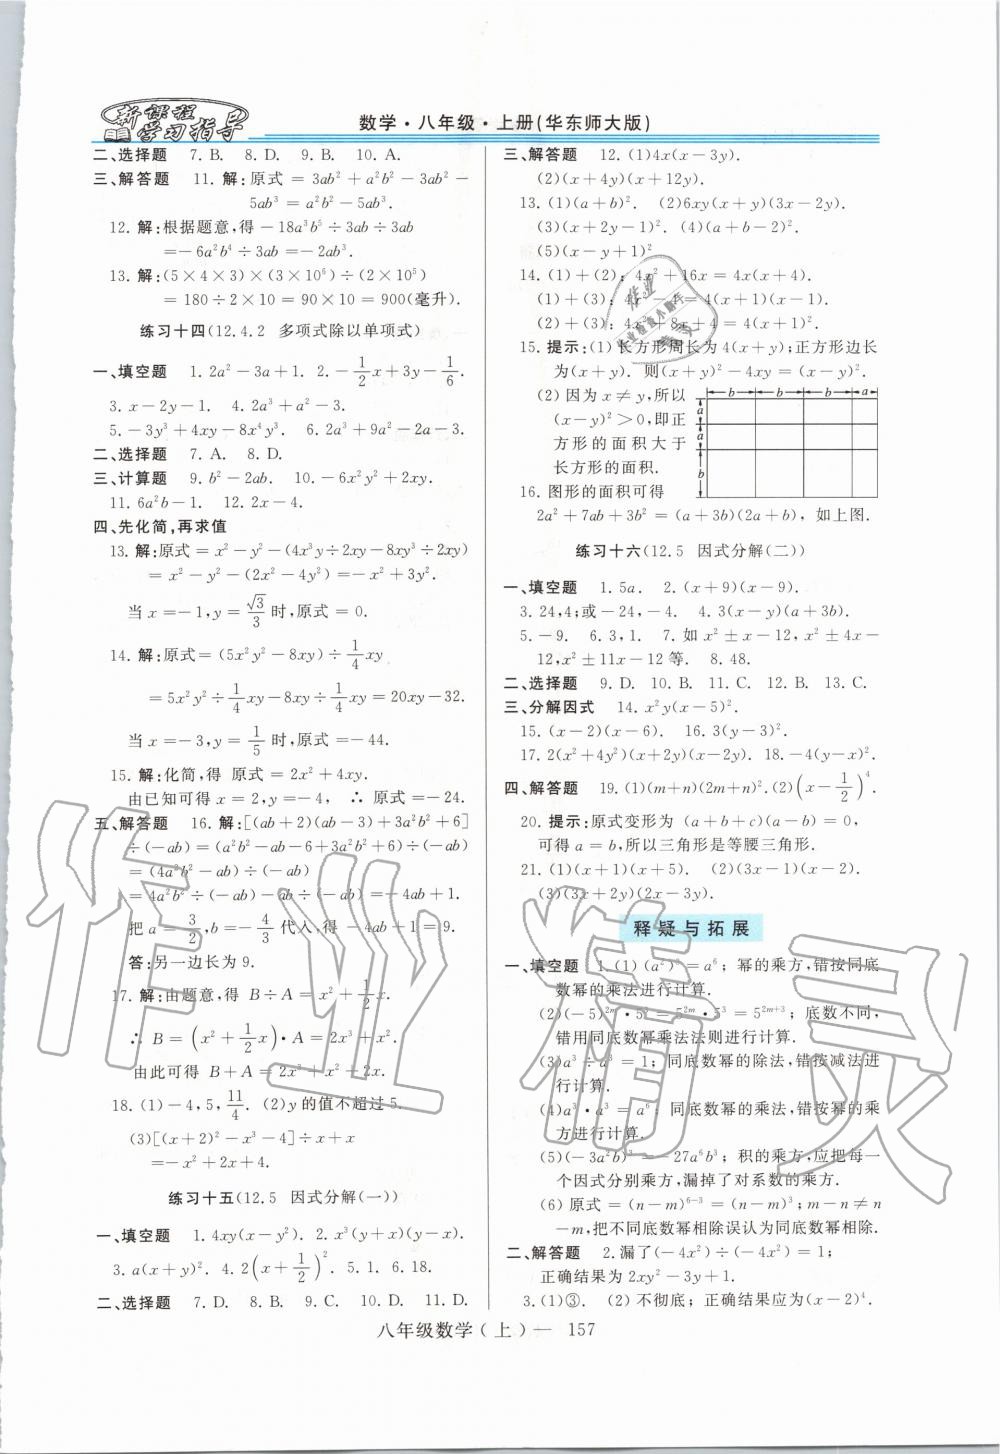 新课程
学习指导
数学·八年级·上册(华东师大版)
二、选择题 7. B. 8. D. 9. B. 10. A.
三、解答题 11. 解:原式 = 3ab² + a²b² − 3ab² −
5ab³ = a²b² − 5ab³.
12. 解:根据题意,得 −18a³b⁵ ÷ 3ab ÷ 3ab
= −6a²b⁴ ÷ 3ab = −2ab³.
13. 解:(5×4×3)×(3×10⁶)÷(2×10⁵)
= 180÷2×10 = 90×10 = 900(毫升).
练习十四(12.4.2 多项式除以单项式)
一、填空题 1. 2a² − 3a + 1. 2. −1/2x + 3y − 1/6.
3. x − 2y − 1. 4. 2a³ + a² − 2.
5. −3y³ + 4xy − 8x⁴y³. 6. 2a³ + 9a² − 2a − 3.
二、选择题 7. A. 8. D.
三、计算题 9. b² − 2ab. 10. −6x²y² + 2xy.
11. 6a²b − 1. 12. 2x − 4.
四、先化简,再求值
13. 解:原式 = x² − y² − (4x³y÷2xy − 8xy³÷2xy)
= x² − y² − (2x² − 4y²) = −x² + 3y².
当 x = −1, y = √3/3 时,原式 = 0.
14. 解:原式 = (5x²y² − 8xy) ÷ 1/4xy
= 5x²y² ÷ 1/4xy − 8xy ÷ 1/4xy = 20xy − 32.
当 x = −3, y = 1/5 时,原式 = −44.
15. 解:化简,得 原式 = 2x² + 4xy.
由已知可得 x = 2, y = −4, ∴ 原式 = −24.
五、解答题 16. 解:[(ab+2)(ab−3)+3a²b²+6]
÷(−ab) = (a²b² − ab − 6 + 3a²b² + 6)÷(−ab)
= (4a²b² − ab)÷(−ab)
= 4a²b²÷(−ab) − ab÷(−ab) = −4ab + 1.
把 a = 3/2, b = −4/3 代入,得 −4ab + 1 = 9.
答:另一边长为 9.
17. 解:由题意,得 B÷A = x² + 1/2x.
∴ B = (x² + 1/2x)·A = 2x³ + x².
由此可得 B + A = 2x³ + x² + 2x.
18. (1) −4, 5, 11/4. (2) y 的值不超过 5.
(3) [(x+2)² − x³ − 4] ÷ x + x
= −x² + 2x + 4.
练习十五(12.5 因式分解(一))
一、填空题 1. 4xy(x − y²). 2. x³(y+x)(y−x).
3. a(x+y)². 4. 2(x + 1/2)². 5. 1. 6. 18.
二、选择题 7. D. 8. B. 9. C. 10. D. 11. D.
三、解答题 12. (1)4x(x−3y).
(2)(x+4y)(x+12y).
13. (1)(a+b)². (2)6xy(x+y)(3x−2y).
(3)(x+2y−1)². (4)(a−2b)².
(5)(x−y+1)²
14. (1)+(2): 4x² + 16x = 4x(x+4).
(1)+(3): 4x² − 4 = 4(x+1)(x−1).
(2)+(3): 4x² + 8x + 4 = 4(x+1)².
15. 提示:(1)长方形周长为 4(x+y);正方形边长
为(x+y). 则(x+y)² − 4xy = (x−y)².
(2) 因为 x ≠ y,所以
(x−y)² > 0,即正
方形的面积大于
长方形的面积.
b b b a
a
a
b
16. 图形的面积可得
2a² + 7ab + 3b² = (a+3b)(2a+b),如上图.
练习十六(12.5 因式分解(二))
一、填空题 1. 5a. 2. (x+9)(x−9).
3. 24,4;或 −24,−4. 4. 3(x−y)(a+3b).
5. −9. 6. 3,1. 7. 如 x² ± x − 12, x² ± 4x −
12, x² ± 11x − 12 等. 8. 48.
二、选择题 9. D. 10. B. 11. C. 12. B. 13. C.
三、分解因式 14. x²y(x−5)².
15. (x−2)(x−6). 16. 3(y−3)².
17. 2(x²+4y²)(x+2y)(x−2y). 18. −4(y−x)².
四、解答题 19. (1)(m+n)(2m+n)². (2)(x − 1/2)⁴.
20. 提示:原式变形为 (a+b+c)(a−b) = 0,
可得 a = b,所以三角形是等腰三角形.
21. (1)(x+1)(x+5). (2)(3x−1)(x−2).
(3)(3x+2y)(2x−3y).
释疑与拓展
一、填空题 1. (1) (a²)³ = a⁶; 幂的乘方,错按同底
数幂的乘法进行计算.
(2)(−5)²ᵐ·5³ = 5²ᵐ·5³ = 5²ᵐ⁺³; 底数不同,
错用同底数幂乘法法则进行计算.
(3)a³ ÷ a³ = 1; 同底数幂的除法,错按减法进
行计算.
(4)a³·a³ = a⁶; 同底数幂的乘法,错按幂的乘
方进行计算.
(5)(−3a²b)³ = −27a⁶b³; 积的乘方,应把每一
个因式分别乘方,漏掉了对系数的乘方.
(6) 原式 = (n−m)⁶⁻³ = (n−m)³; m − n ≠ n
− m,把不同底数幂相除误认为同底数幂相除.
二、解答题 2. 漏了(−4x²)÷(−4x²) = 1;
正确结果为 2xy² − 3y + 1.
3. (1)③. (2) 不彻底; 正确结果应为(x−2)⁴.
八年级数学(上)— 157
作业精灵